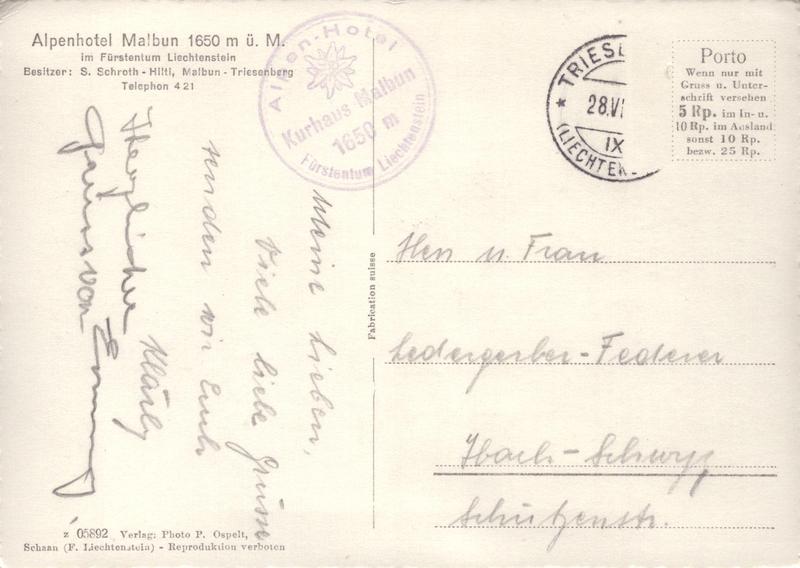 Alpenhotel Malbun 1650 m ü. M.
im Fürstentum Liechtenstein
Besitzer: S. Schroth - Hilti, Malbun - Triesenberg
Telephon 421
Alpen-Hotel
Kurhaus Malbun
1650 m
Fürstentum Liechtenstein
* TRIESE
28.VI
IX
(LIECHTEN
Porto
Wenn nur mit
Gruss u. Unter-
schrift versehen
5 Rp. im In- u.
10 Rp. im Ausland
sonst 10 Rp.
bezw. 25 Rp.
Meine Lieben,
Viele liebe Grüsse
senden wir Euch
Kläsly
Herzliche
Grüsse von
Fabrication suisse
Herr u. Frau
Ledergerber-Federer
Ibach-Schwyz
Schützenstr.
z 05892 Verlag: Photo P. Ospelt,
Schaan (F. Liechtenstein) - Reproduktion verboten